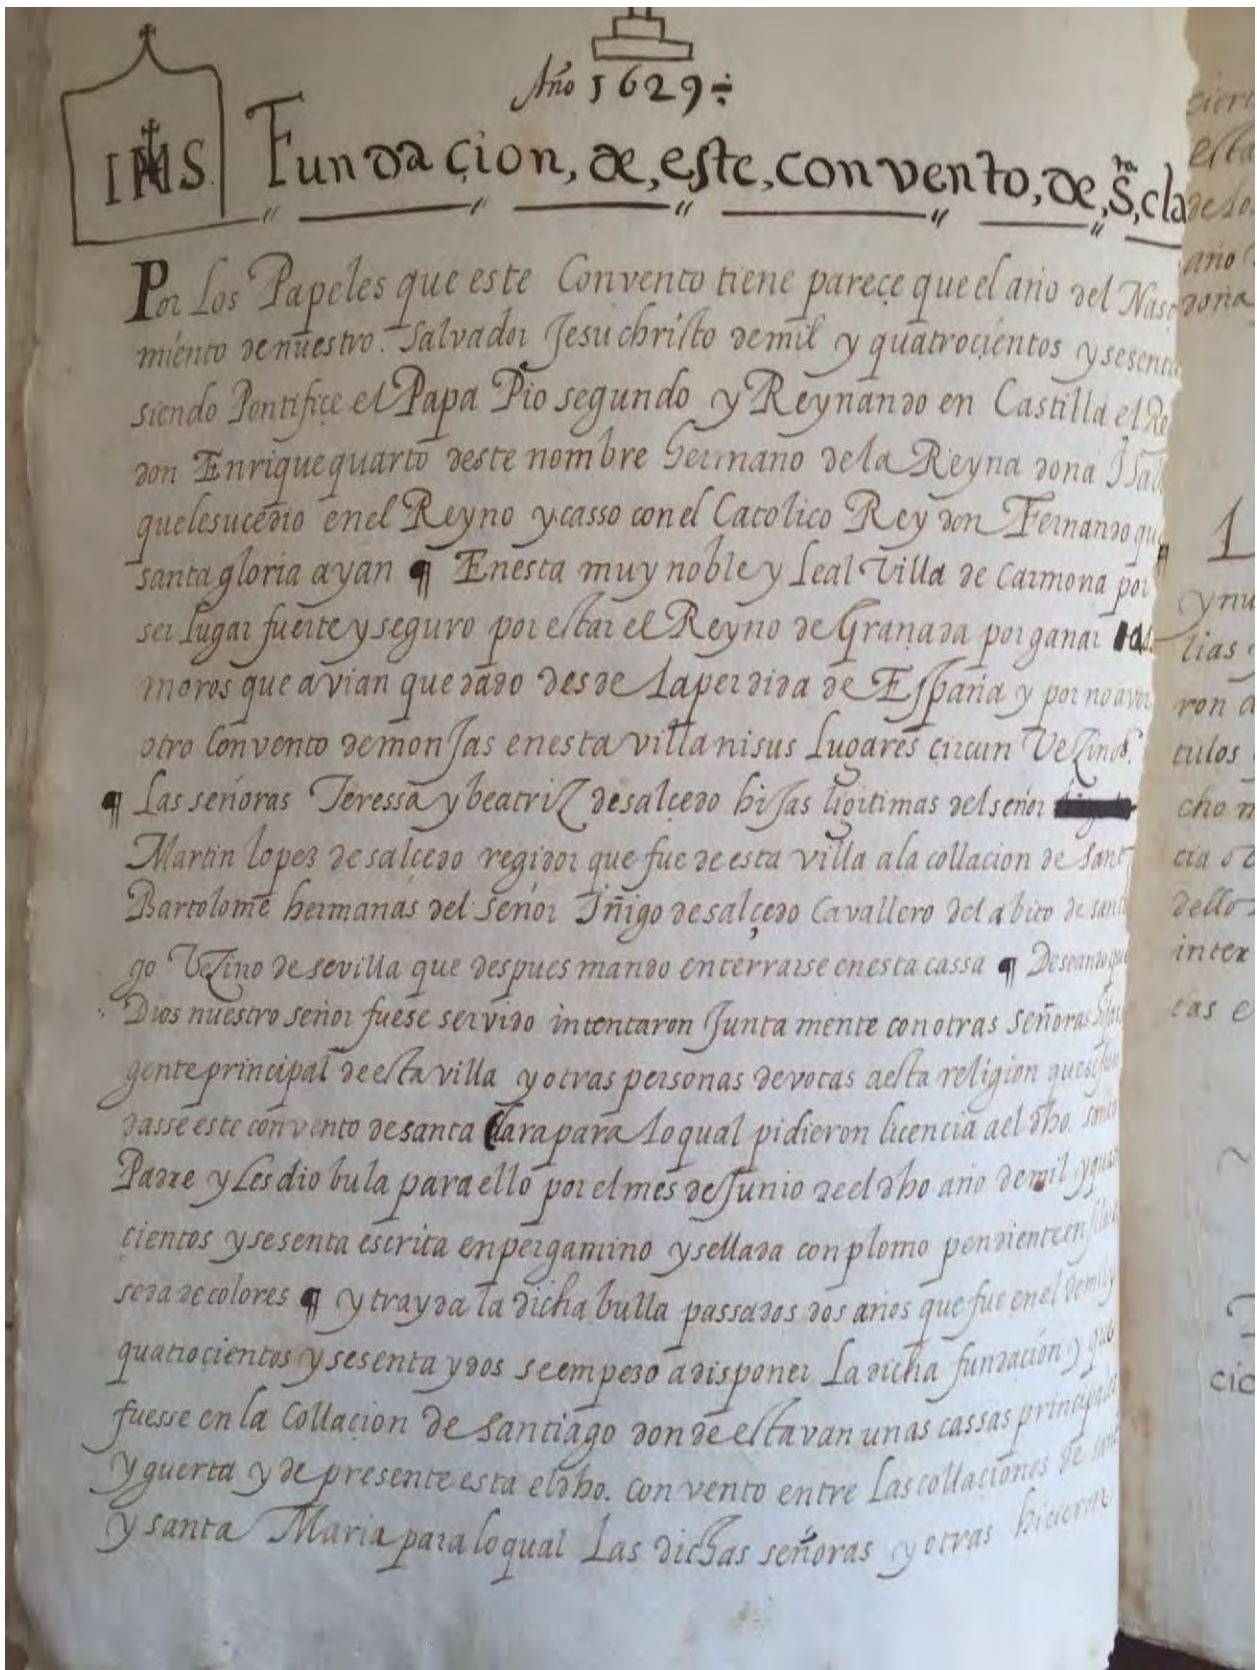 Año 1629÷
IHS. Fundaçion, de, este, convento, de, S.ta, cla
Por Los Papeles que este Convento tiene pareçe que el año del Nasc
miento de nuestro. Salvador Jesuchristo de mil y quatrocientos y sesenta
siendo Pontifiçe el Papa Pio segundo y Reynando en Castilla el Re
don Enrique quarto deste nombre hermano de la Reyna dona Isab
que le sucedio en el Reyno y casso con el Catolico Rey don Fernando que
santa gloria ayan ¶ En esta muy noble y Leal Villa de Carmona por
ser Lugar fuerte y seguro por estar el Reyno de Granada por ganar
moros que avian quedado desde la perdida de España y por no aver
otro Convento de monjas en esta villa ni sus Lugares circun Vezinos.
¶ Las señoras Teressa y beatriz de salçedo hijas ligitimas del señor
Martin lopez de salçedo regidor que fue de esta villa a la collacion de sant
Bartolome hermanas del señor Iñigo de salçedo Cavallero del abito de santi
go Vezino de sevilla que despues mando enterrarse en esta cassa ¶ Deseando que
Dios nuestro señor fuese servido intentaron Junta mente con otras señoras hijas
gente principal de esta villa y otras personas devotas a esta religion que se fun
dasse este convento de santa Clara para lo qual pidieron licencia a el dho. santo
Padre y Les dio bula para ello por el mes de Junio de el dho año de mil y quatro
çientos y sesenta escrita en pergamino y sellada con plomo pendiente en
seda de colores ¶ y trayda la dicha bulla passados dos años que fue en el de mil y
quatrocientos y sesenta y dos se empeso a disponer La dicha fundación y que
fuesse en la Collacion de Santiago donde estavan unas cassas principales
y guerta y de presente esta el dho. convento entre Las collaciones de
y santa Maria para lo qual Las dichas señoras y otras hicieron
ano
dona
L
y nu
lias
ron a
tulos
cho m
cia o
dello
inter
tas e
cio